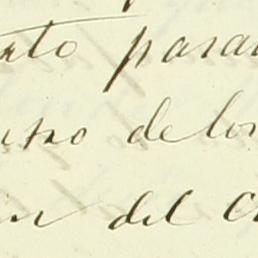 nto para
utro de los
in del C